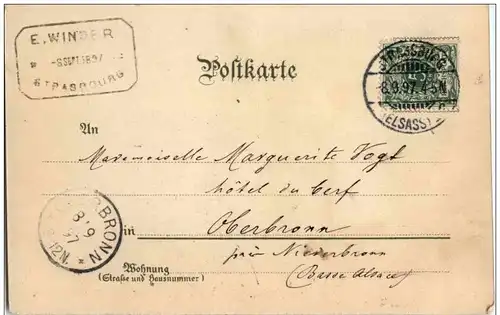 E. WINTER
-8 SEPT. 1897
STRASBOURG
Postkarte
STRASSBURG
8.9.97.4-5N.
(ELSASS)
An
Mademoiselle Marguerite Vogt
hôtel du Cerf
in Oberbronn
près Niederbronn
(Basse Alsace)
BRONN
8/9
97
12N.
Wohnung
(Straße und Hausnummer)